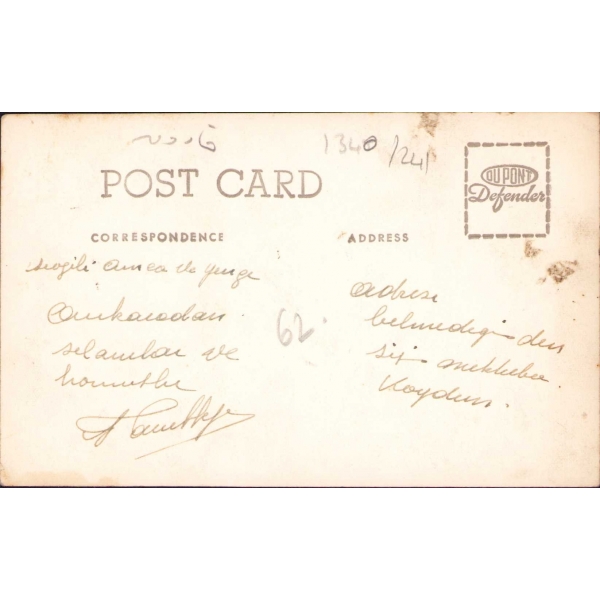 1340/241
POST CARD
DU PONT
Defender
CORRESPONDENCE
ADDRESS
sevgili amca ve yenge
Ankaradan
selamlar ve
hürmetler
62
adresi
bilmediğinden
siz mektuba
koydum.